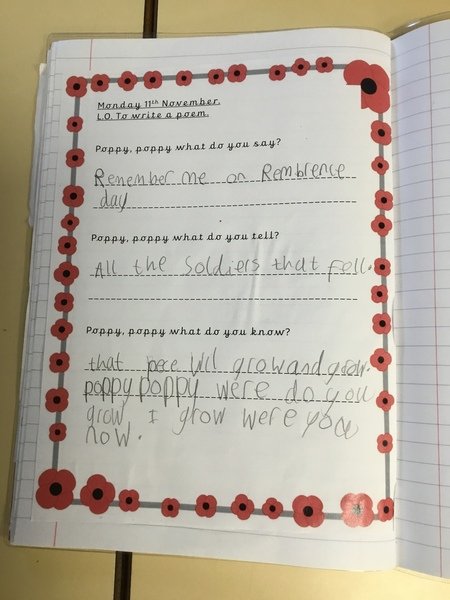 Monday 11th November.
L.O. To write a poem.
Poppy, poppy what do you say?
Remember me on Rembrence
day
Poppy, poppy what do you tell?
All the Soldiers that fell.
Poppy, poppy what do you know?
that pece wil grow and grow.
poppy poppy were do you
grow I grow were you
now.